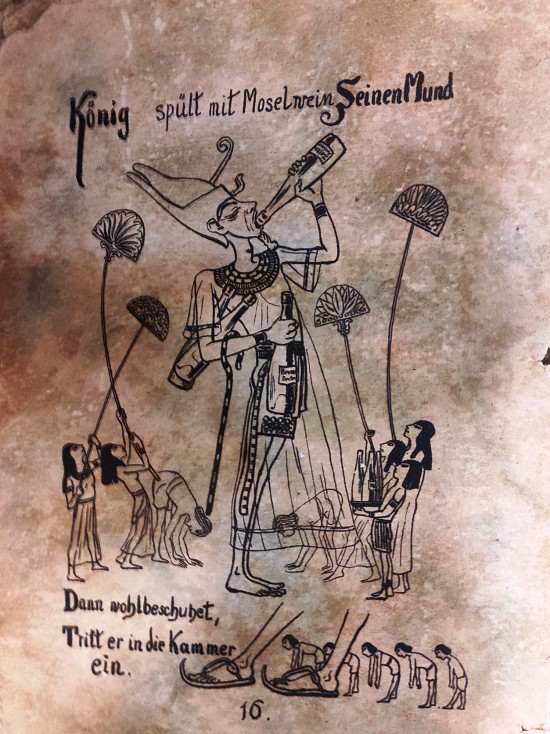 König spült mit Moselwein Seinen Mund
Dann wohlbeschuhet,
Tritt er in die Kammer
ein.
16.